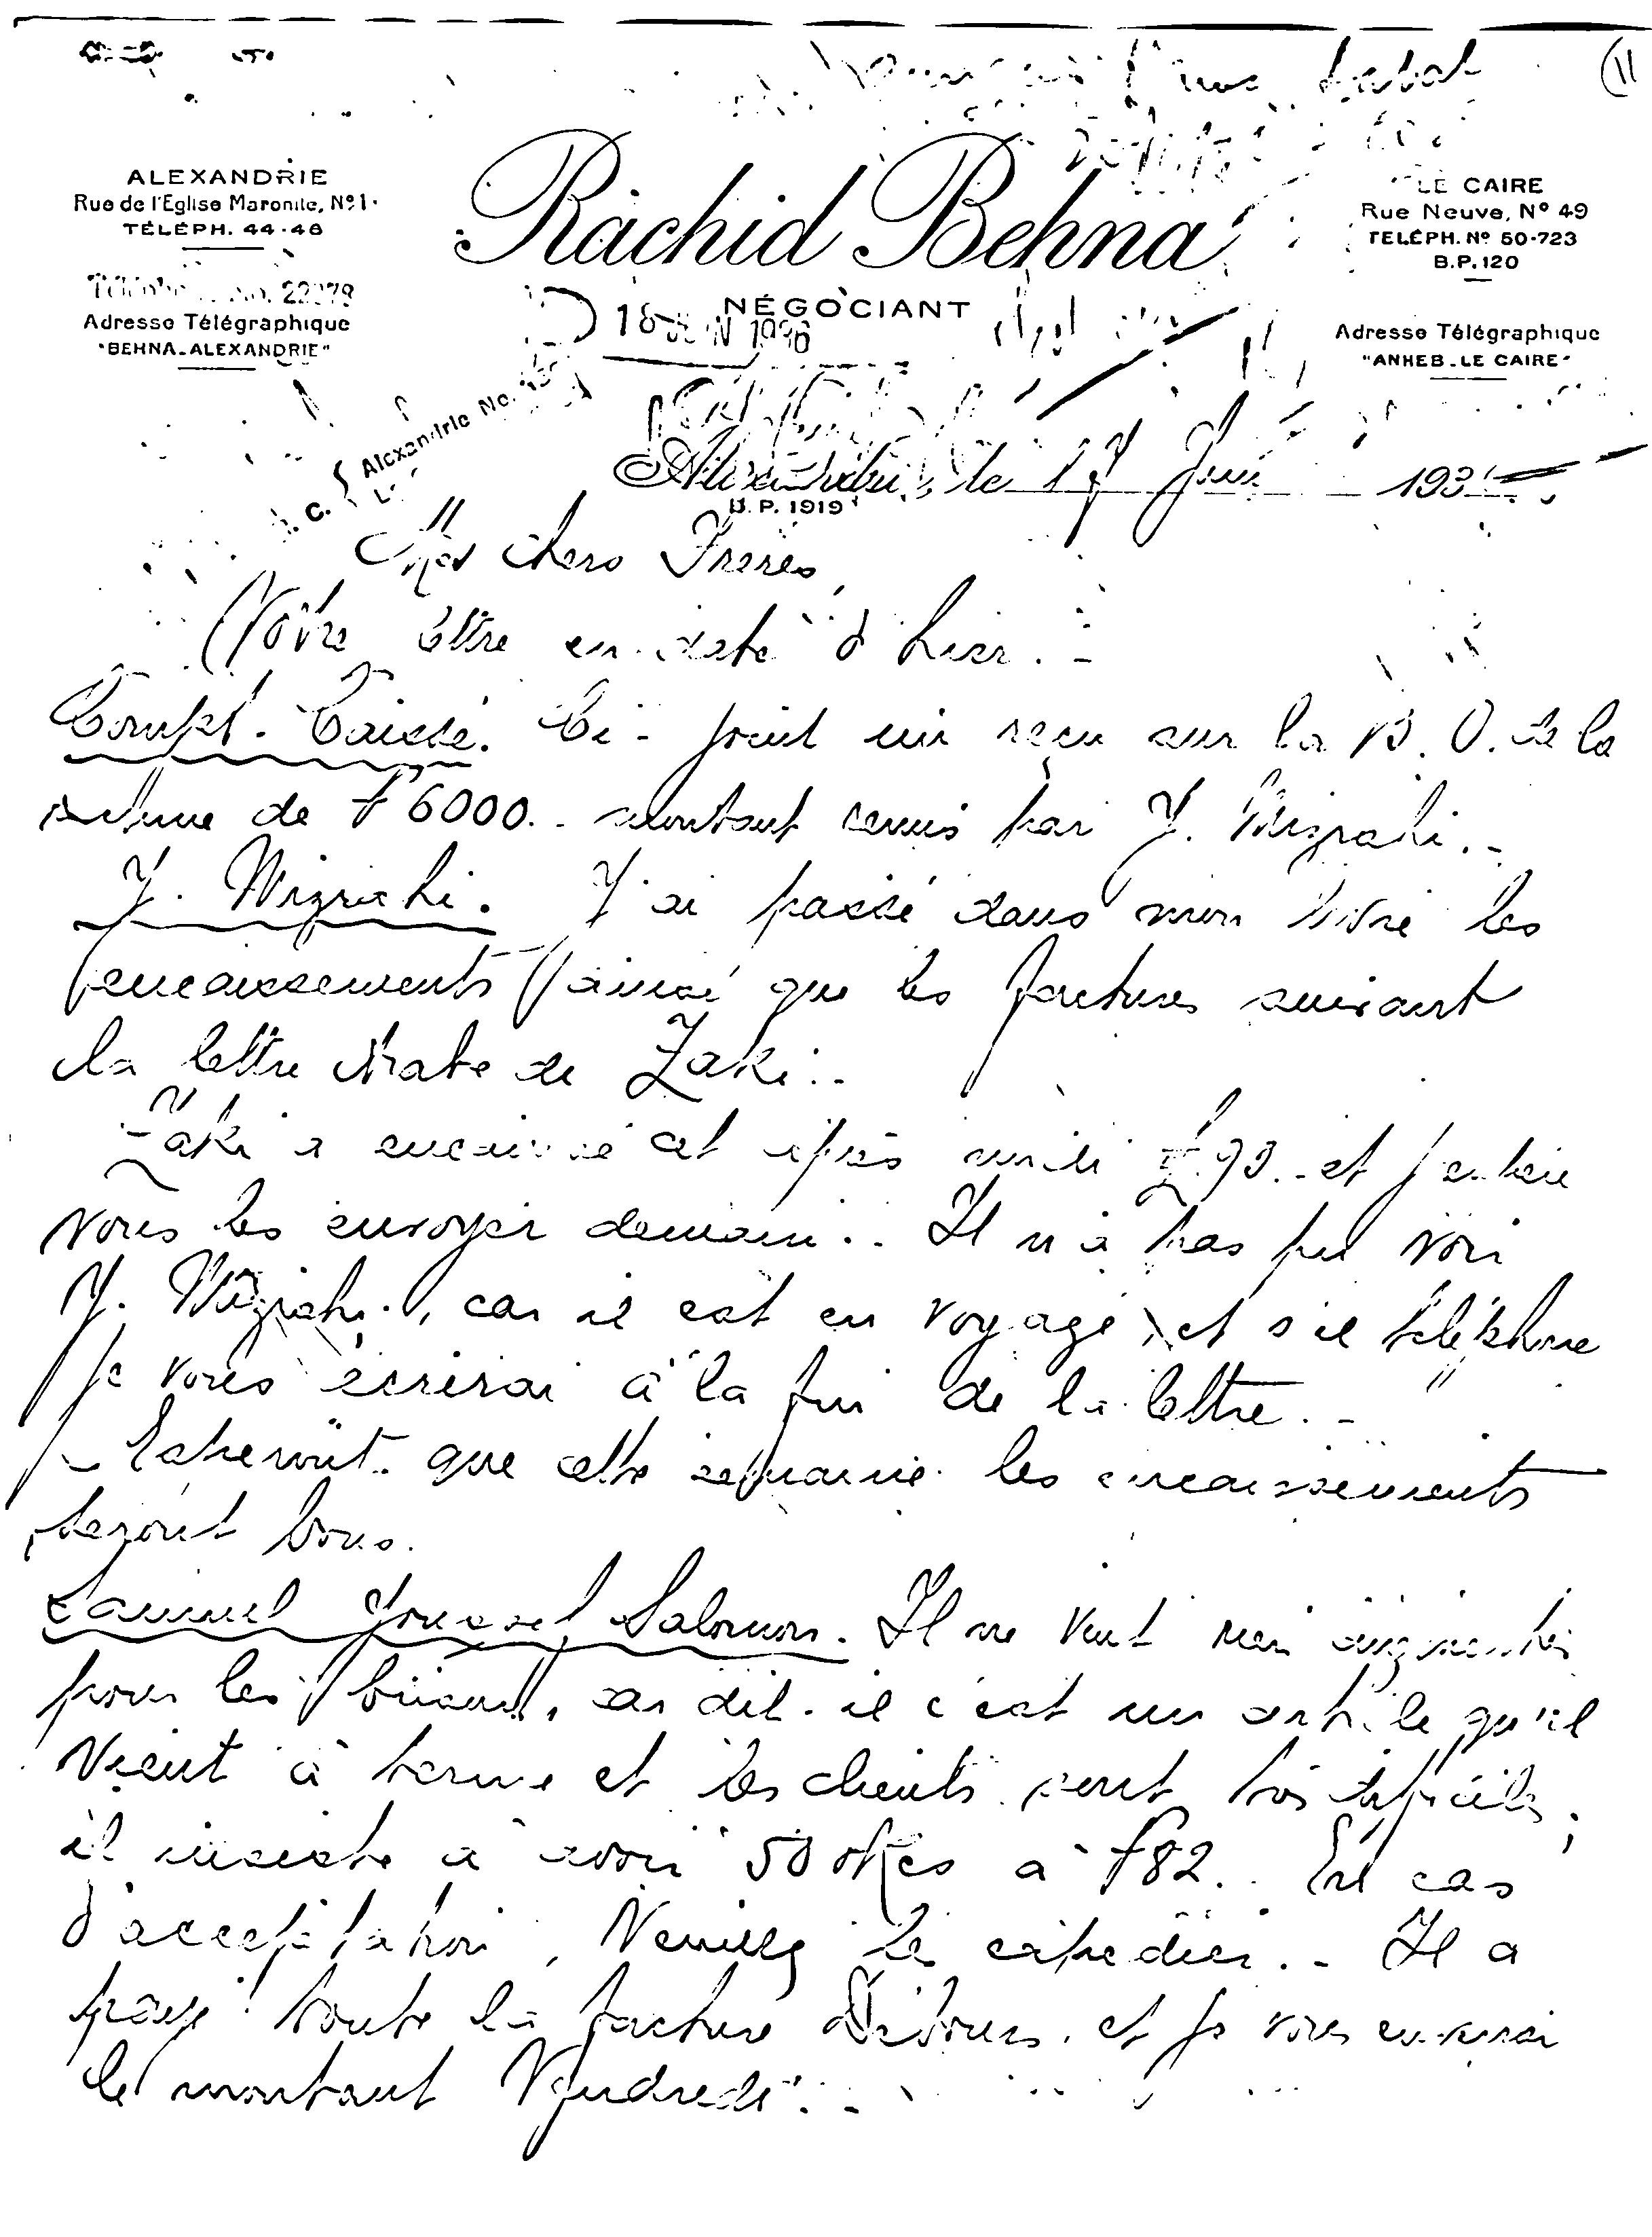 (11
ALEXANDRIE
Rue de l'Eglise Maronite, Nº 1
TÉLÉPH. 44-48
22079
Adresse Télégraphique
"BEHNA-ALEXANDRIE"
Rachid Behna
NÉGOCIANT
LE CAIRE
Rue Neuve, Nº 49
TELÉPH. Nº 50-723
B.P. 120
Adresse Télégraphique
"ANHEB-LE CAIRE"
18 JUN 1936
Alexandrie No.
Alexandrie, le 17 Juin 193
B.P. 1919
Mes chers Frères,
Votre lettre en date d'hier.-
Compt. Caisse. Ci-joint un reçu sur la B.O. de la
somme de £ 6000.- montant remis par J. Mizrahi.-
J. Mizrahi. J'ai passé dans mon livre les
encaissements ainsi que les factures suivant
la lettre Arabe de Zaki.-
Zaki a encaissé cet après midi £ 93.- et
vous les envoyer demain.. Il n'a pas pu voir
J. Mizrahi, car il est en voyage, et s'il téléphone
je vous écrirai à la fin de la lettre.-
que cette semaine les encaissements
seront bons.
Samuel Youssef Salomon. Il ne veut rien augmenter
pour les, car dit-il c'est un article qu'il
vend à terme et les clients sont très difficiles;
il insiste à avoir 50 okes à £ 82.. En cas
d'acceptation, Veuillez les expédier.- Il a
payé toute la facture et je vous enverrai
le montant Vendredi.-